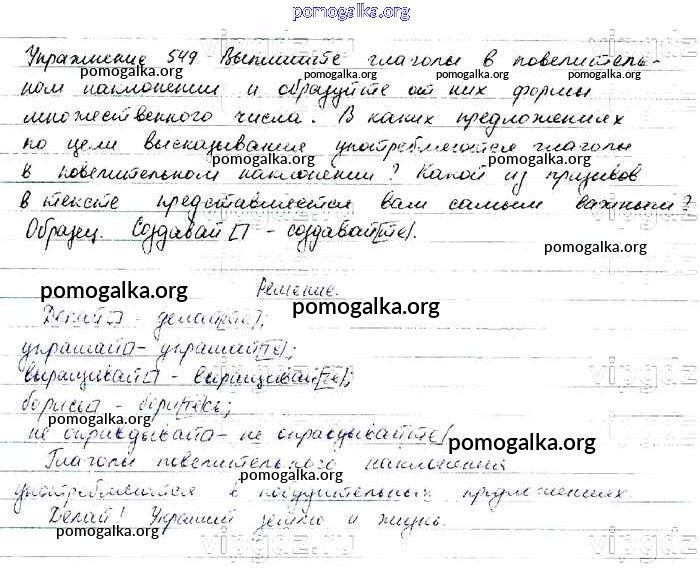 pomogalka.org
Упражнение 549 Выпишите глаголы в повелитель-
pomogalka.org pomogalka.org pomogalka.org
ном наклонении и образуйте от них формы
множественного числа. В каких предложениях
по цели высказывания употребляются глаголы
pomogalka.org
в повелительном наклонении? Какой из призывов
в тексте представляется вам самым важным?
Образец. Создавай - создавай[те].
pomogalka.org
pomogalka.org Решение. pomogalka.org
Делай - делай[те];
украшай - украшай[те];
выращивай - выращивай[те];
борись - бори[те]сь;
не оправдывай - не оправдывай[те]
pomogalka.org
Глаголы повелительного наклонения
pomogalka.org
употребляются в побудительных предложениях
Делай! Украшай землю и жизнь.
pomogalka.org pomogalka.org
vipgdz